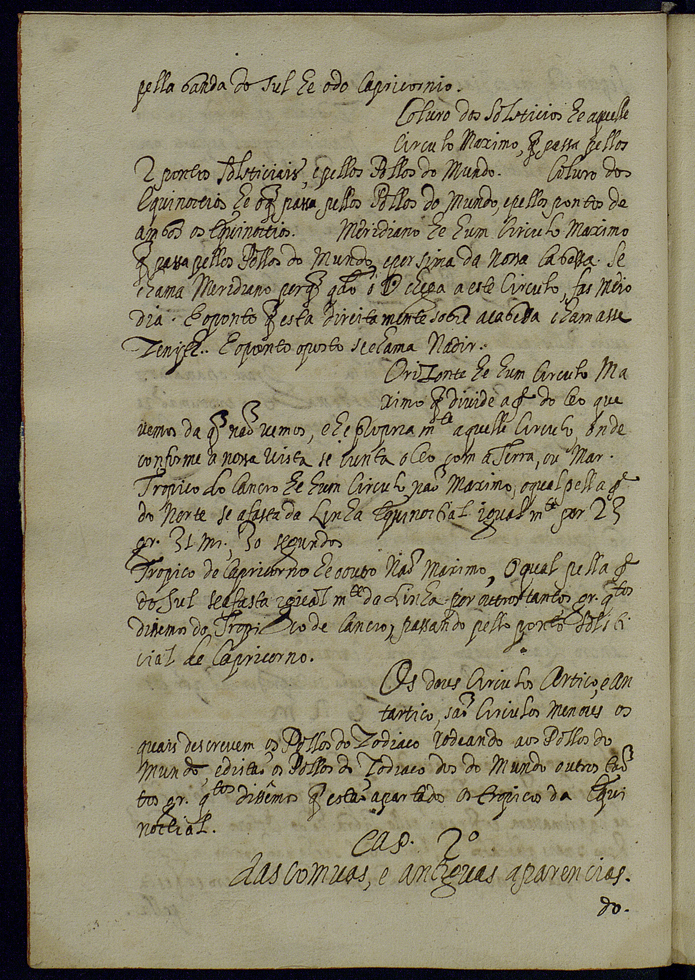 pella banda do sul he o do Capricornio.
Coluro dos Solsticios he aquelle
Circulo Maximo, q̃ passa pellos
2 pontos solsticiais, e pellos Pollos do Mundo. Coluro dos
Equinoctios he o q̃ passa pellos Pollos do Mundo, e pellos pontos de
ambos os Equinoctios. Meridiano he hum Circulo Maximo
q̃ passa pellos Pollos do Mundo, e por sima da nossa Cabessa. Se
chama Meridiano porq̃ qdo o chega a este Circulo, fas meio
dia. E o ponto q̃ esta direitamente sobre a cabessa chamasse
Zenith. E o ponto oposto se chama Nadir.
Orizonte he hum Circulo Ma
ximo q̃ divide a p.te do Ceo que
vemos da q̃ não vemos, e he propria m.te aquelle Circulo, onde
conforme a nossa vista se iunta o Ceo com a Terra, ou Mar.
Tropico do Cancro he hum Circulo não Maximo, o qual pella p.te
do Norte se afasta da Linha Equinoctial igual m.te por 23
gr. 31 m. 30 segundos
Tropico de Capricorno he outro Não Maximo, O qual pella p.te
do Sul se afasta igual m.te da Linha por outros tantos gr. q.tos
dissemos do Tropico de Cancro, passando pello ponto Solsti
cial de Capricorno.
Os dous Circulos Artico, e An
tartico, são Circulos menores os
quais descrevem os Pollos do Zodiaco rodeando aos Pollos do
Mundo, e distão os Pollos do Zodiaco dos do Mundo outros tan
tos gr. q.tos dissemos q̃ estão apartado os tropicos da Equi
noctial.
Cap. 2º
das comuas, e antiguas aparencias.
do.